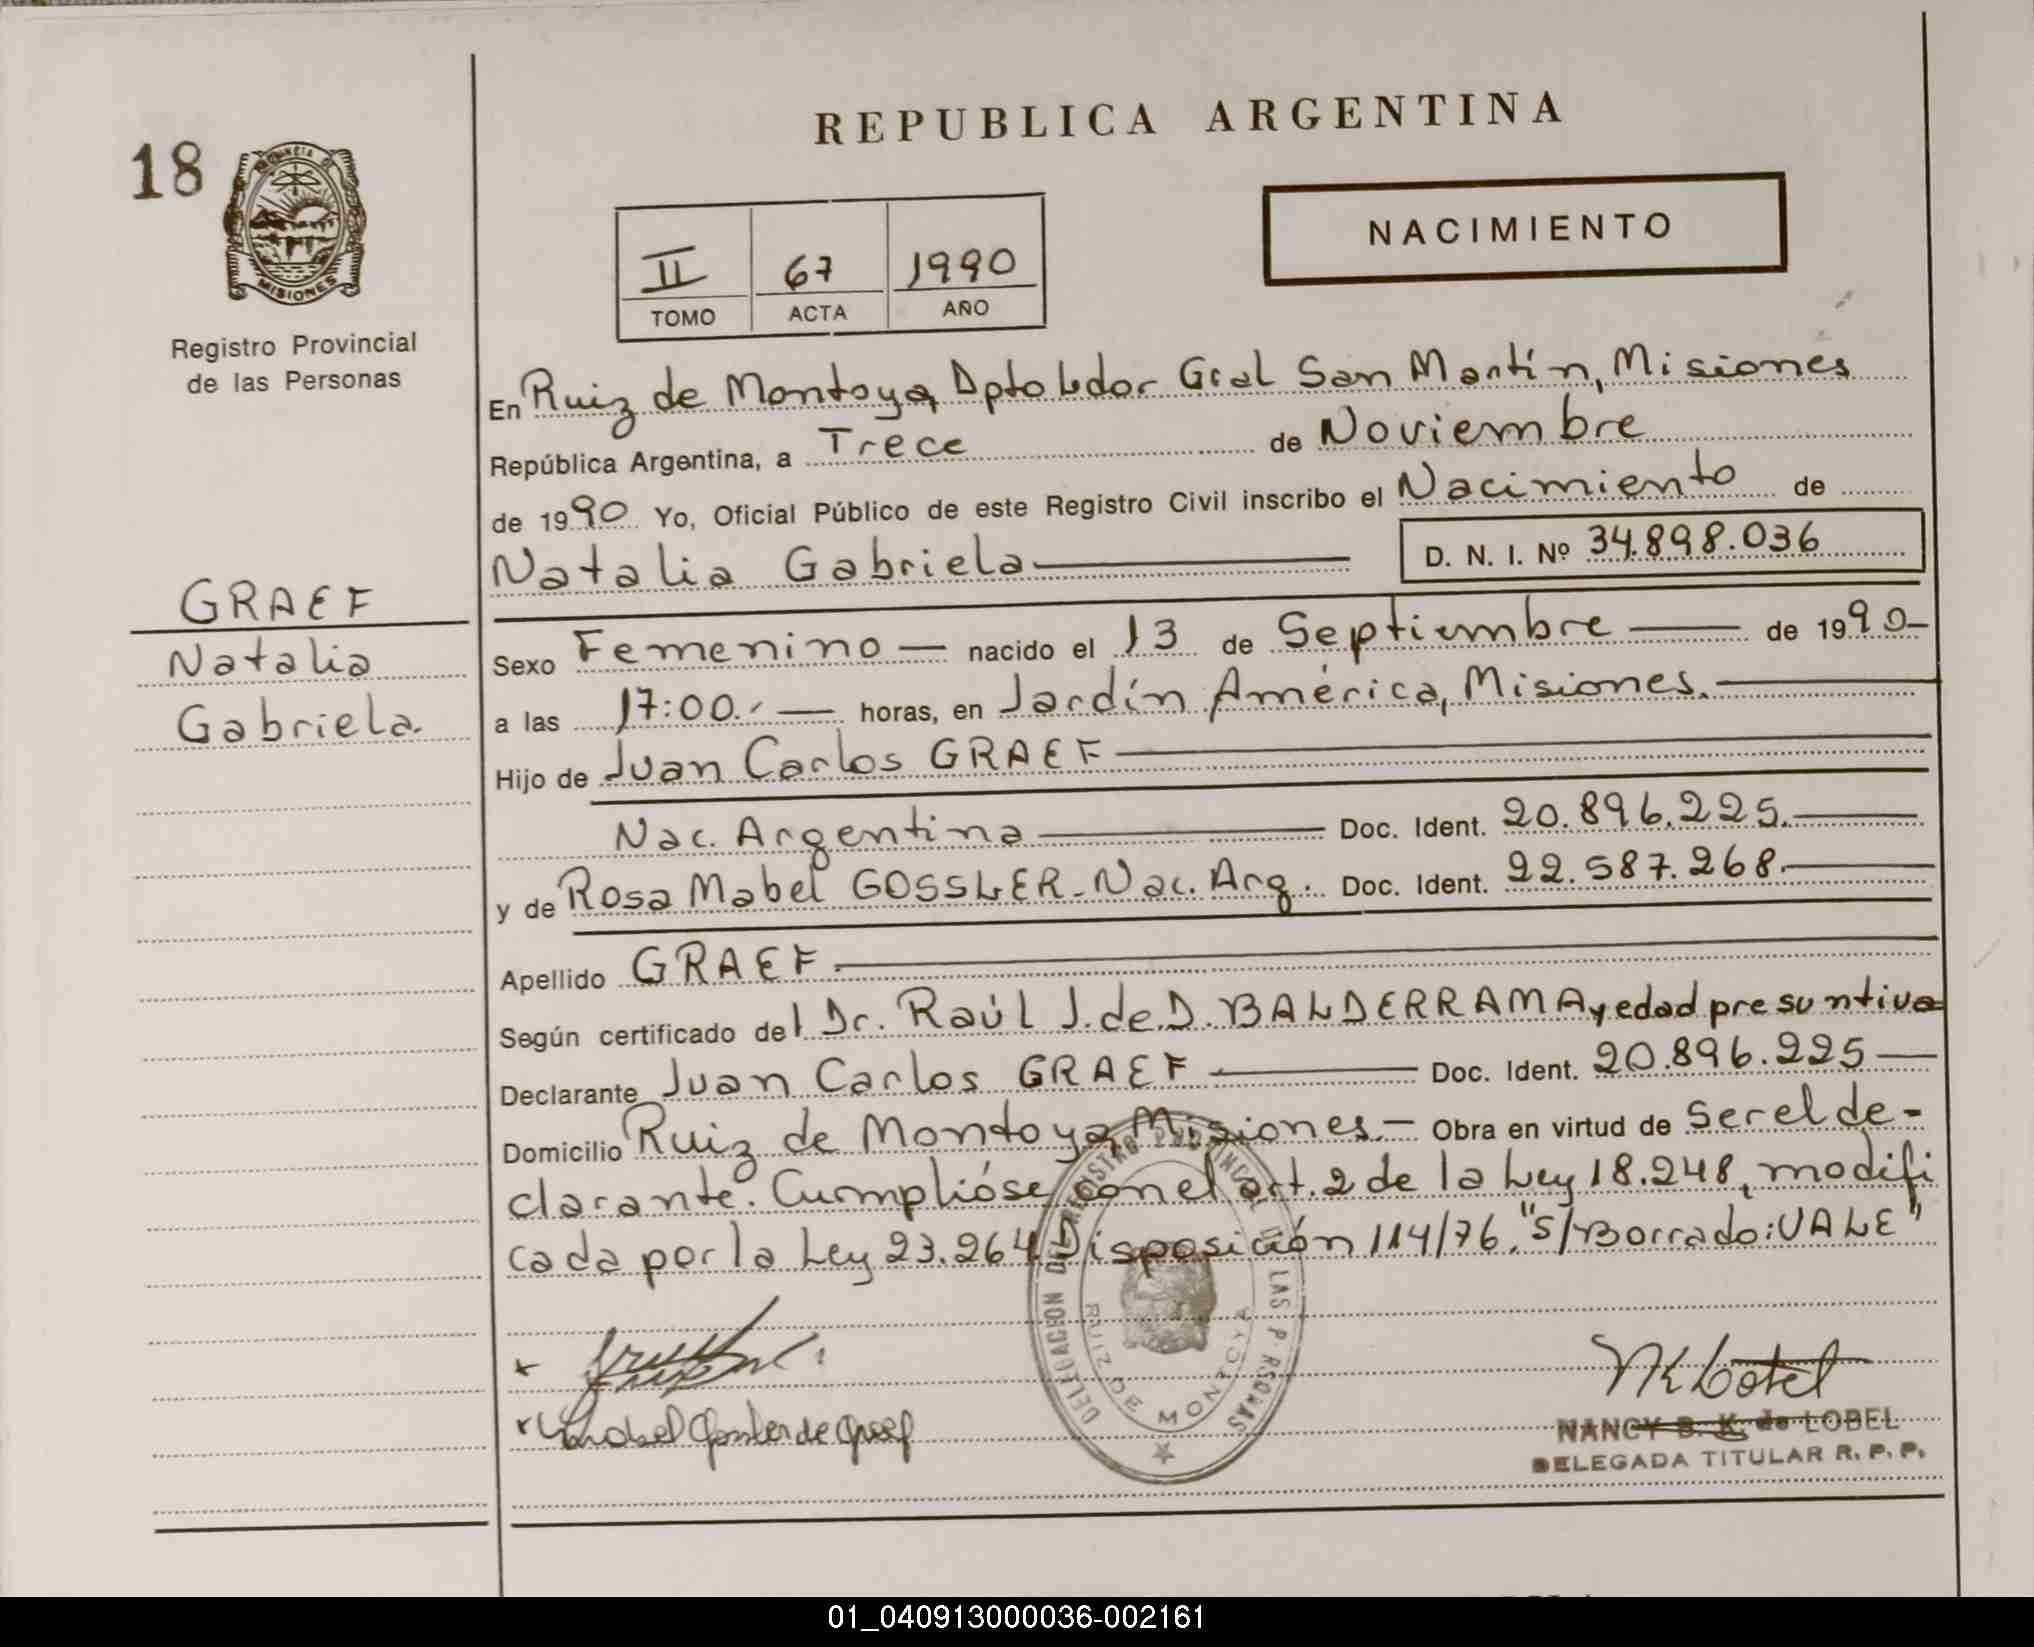 REPUBLICA ARGENTINA
18
PROVINCIA DE
MISIONES
Registro Provincial
de las Personas
II 67 1990
TOMO ACTA AÑO
NACIMIENTO
En Ruiz de Montoya, Dpto Ldor Gral San Martín, Misiones
República Argentina, a Trece de Noviembre
de 1990 Yo, Oficial Público de este Registro Civil inscribo el Nacimiento de
Natalia Gabriela D. N. I. Nº 34.898.036
GRAEF
Natalia
Gabriela.
Sexo Femenino nacido el 13 de Septiembre de 1990
a las 17:00.- horas, en Jardín América, Misiones.
Hijo de Juan Carlos GRAEF
Nac. Argentina Doc. Ident. 20.896.225.
y de Rosa Mabel GOSSLER - Nac. Arg. Doc. Ident. 22.587.268.
Apellido GRAEF
Según certificado del Dr. Raúl J. de D. BALDERRAMA y edad presuntiva
Declarante Juan Carlos GRAEF Doc. Ident. 20.896.225
Domicilio Ruiz de Montoya, Misiones.- Obra en virtud de Ser el de-
clarante. Cumplióse con el art. 2 de la Ley 18.248, modifi
cada por la Ley 23.264 Disposición 114/76. "S/Borrado: VALE"
DELEGACION DEL REGISTRO PROVINCIAL DE LAS PERSONAS
RUIZ DE MONTOYA
Mabel Gossler de Graef
NANCY B. K. de LOBEL
DELEGADA TITULAR R. P. P.
01_040913000036-002161